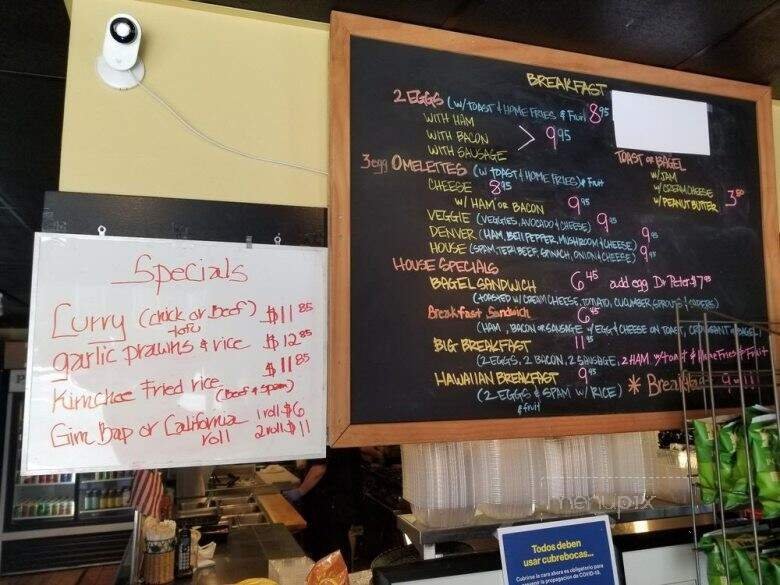 Specials
Curry (chick or Beef) $11 85
tofu
garlic prawns & rice $12 85
Kimchee Fried rice $11 85
(Beef & Spam)
Gim Bap or California 1 roll $6
roll 2 roll $11
BREAKFAST
2 EGGS (W/ TOAST & HOME FRIES & Fruit 8 95
WITH HAM
WITH BACON > 9 95
WITH SAUSAGE
3 egg OMELETTES (W TOAST & HOME FRIES) & Fruit
CHEESE 8 95
W/ HAM OR BACON 9 95
VEGGIE (VEGGIES, AVOCADO & CHEESE) 9 95
DENVER (HAM, BELL PEPPER, MUSHROOM & CHEESE) 9 95
HOUSE (SPAM, TERI BEEF, SPINACH, ONION & CHEESE) 9 95
TOAST OR BAGEL
W/ JAM
W/ CREAM CHEESE 3 50
W/ PEANUT BUTTER
HOUSE SPECIALS
BAGEL SANDWICH 6 45 add egg Dr Peter $7 95
(TOASTED W/ CREAM CHEESE, TOMATO, CUCUMBER, SPROUTS & CAPERS)
Breakfast Sandwich 6 45
(HAM, BACON OR SAUSAGE W/ EGG & CHEESE ON TOAST, CROISSANT OR BAGEL)
BIG BREAKFAST 11 95
(2 EGGS, 2 BACON, 2 SAUSAGE, 2 HAM, W/ toast & Home Fries & Fruit
HAWAIIAN BREAKFAST 9 95
(2 EGGS & SPAM W/ RICE) * Breakfast 9 - 11
& fruit
menupix
Todos deben
usar cubrebocas...
Cubrirse la cara ahora es obligatorio para
la propagación de COVID-19.